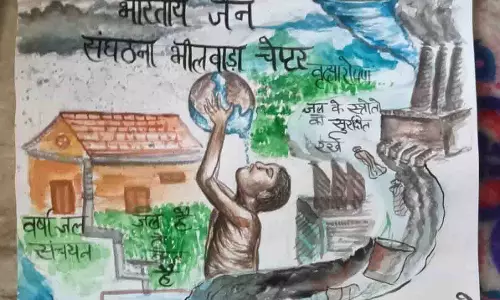 भारतीय जन
संघठना भीलवाड़ा चेप्टर
वृक्षारोपण
जल के स्त्रोतों
को सुरक्षित
रखें
वर्षा जल
संचयन
जल है
तो
है